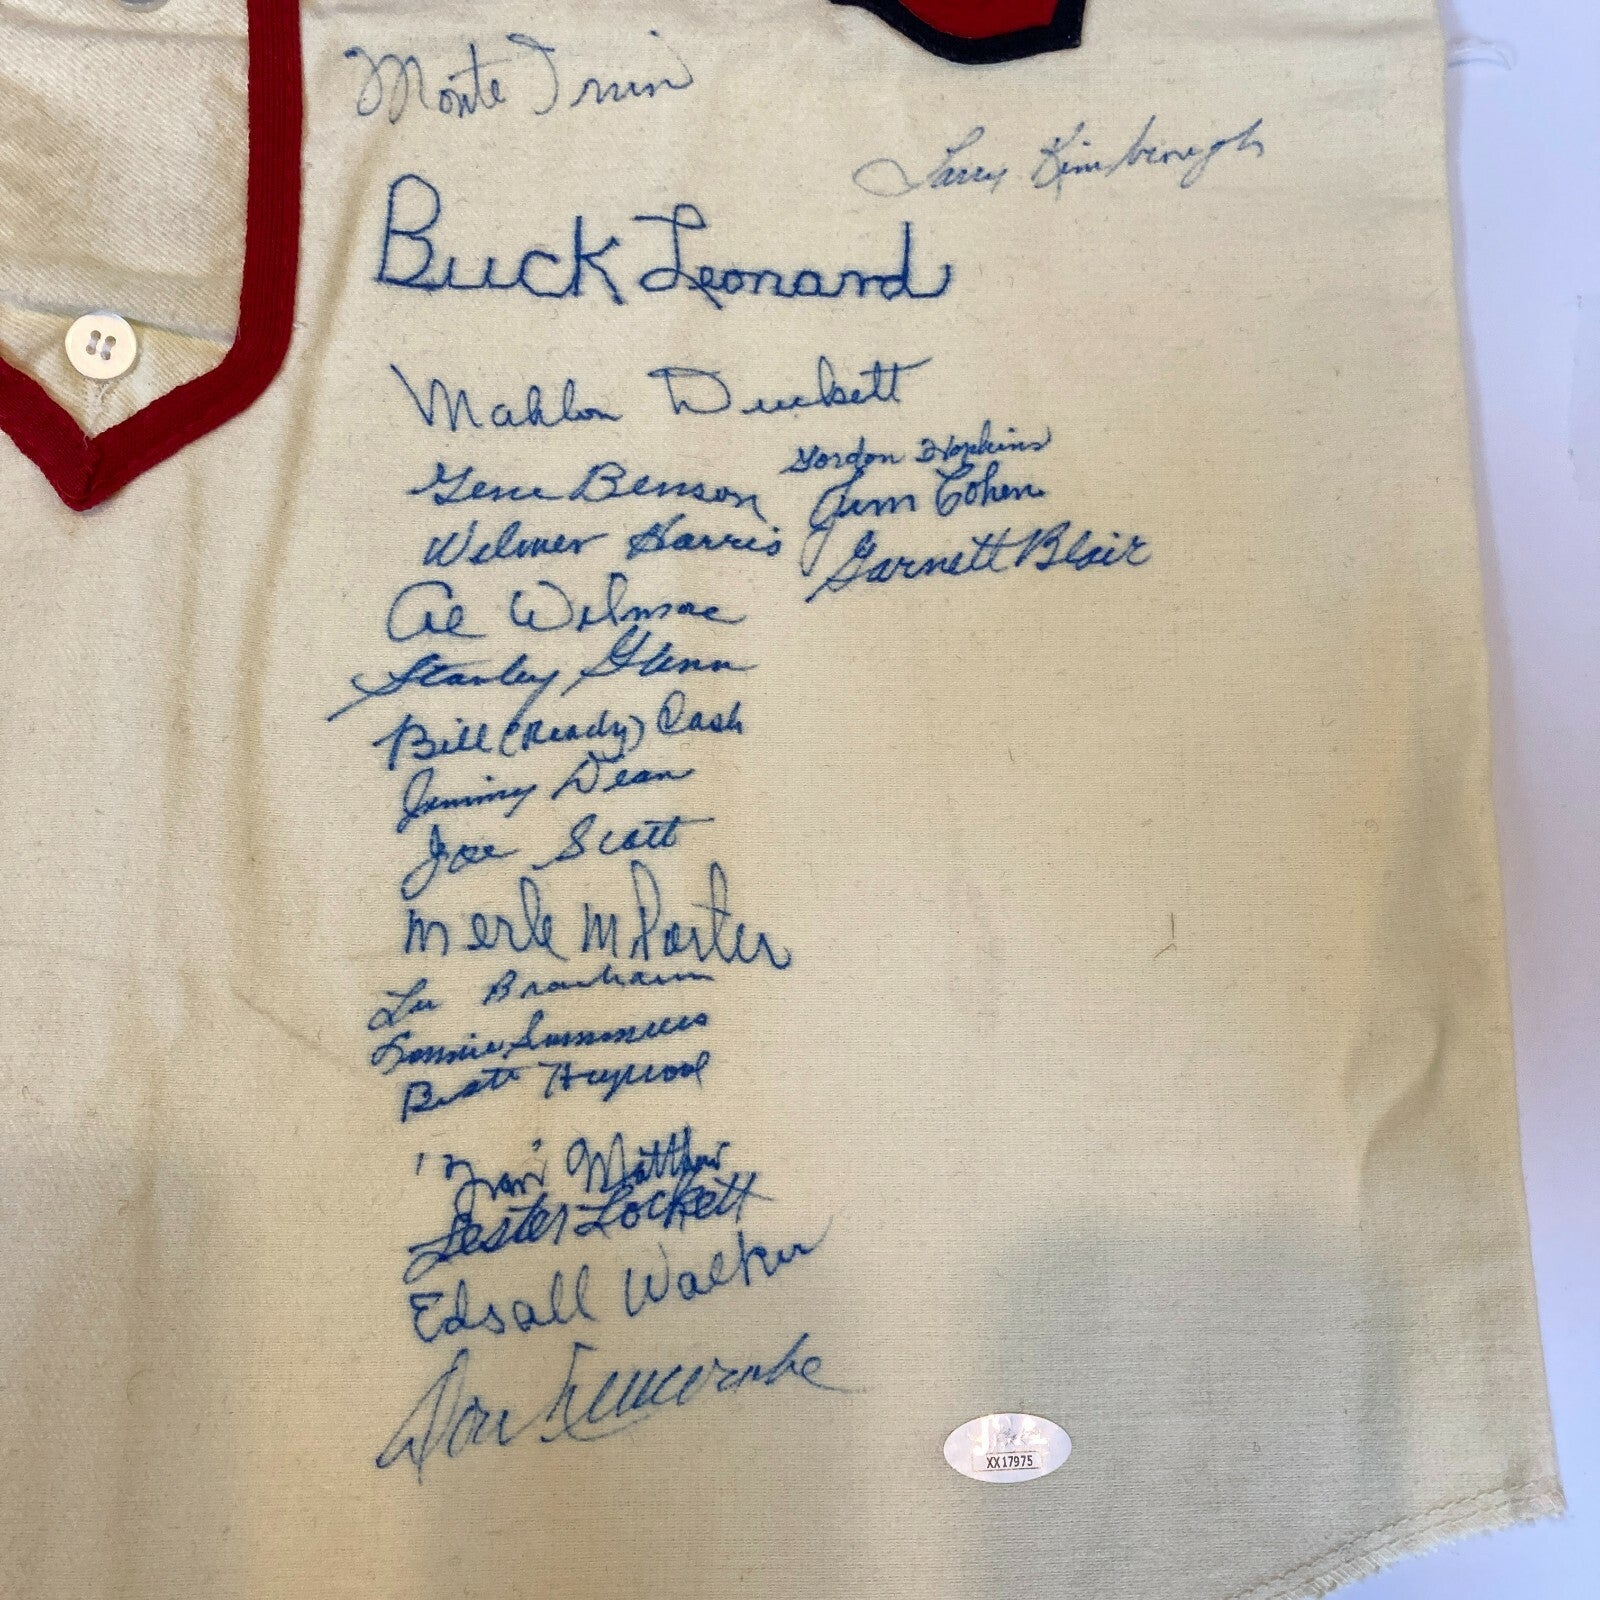 Monte Irvin
Larry Kimbrough
Buck Leonard
Mahlon Duckett
Gordon Hopkins
Gene Benson
Jim Cohen
Wilmer Harris
Garnett Blair
Al Wilmore
Stanley Glenn
Bill (Ready) Cash
Jimmy Dean
Joe Scott
Merle M Porter
Lonnie Summers
'Fran' Matthews
Lester Lockett
Edsall Walker
Don Newcombe
XX17975